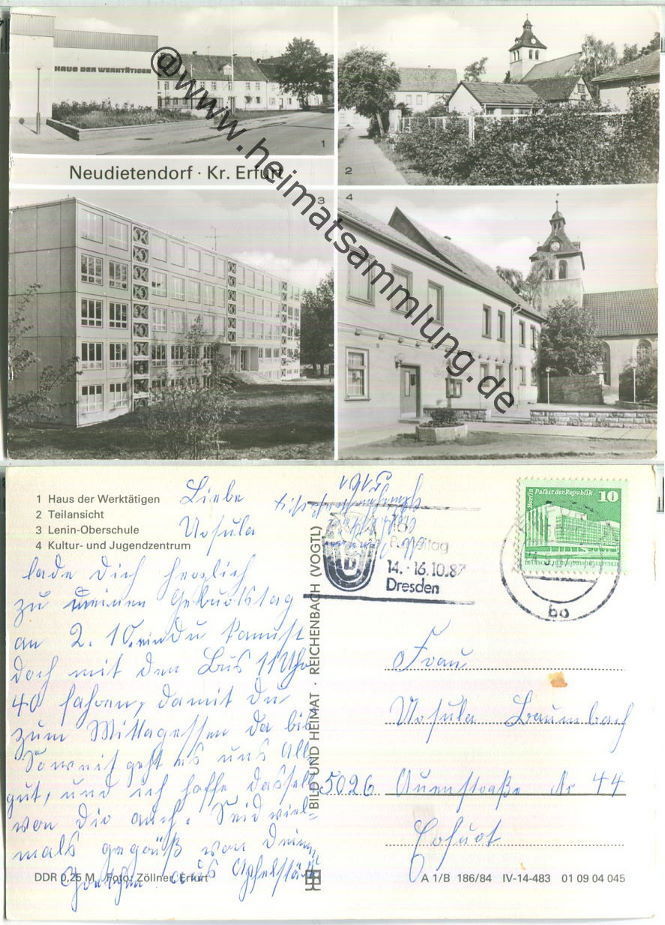 HAUS DER WERKTÄTIGEN
1
2
Neudietendorf · Kr. Erfurt
3
4
@www.heimatsammlung.de
1 Haus der Werktätigen
2 Teilansicht
3 Lenin-Oberschule
4 Kultur- und Jugendzentrum
Liebe
Ursula
lade Dich herzlich
zu meinen Geburtstag
an 2. 10. ein du kannst
doch mit dem Bus 11 Uhr
40 fahren, damit du
zum Mittagessen da bist
Soweit geht es uns allen
gut, und ich hoffe dasselbe
von dir auch. Seid viel-
mals gegrüßt von Deiner
aus Apfelstädt
DDR 0,25 M Foto: Zöllner, Erfurt
BILD UND HEIMAT · REICHENBACH (VOGTL)
14.-16.10.87
Dresden
Berlin Palast der Republik 10
Frau
Ursula Baumbach
5026 Auenstraße Nr 44
Erfurt
A 1/B 186/84 IV-14-483 01 09 04 045